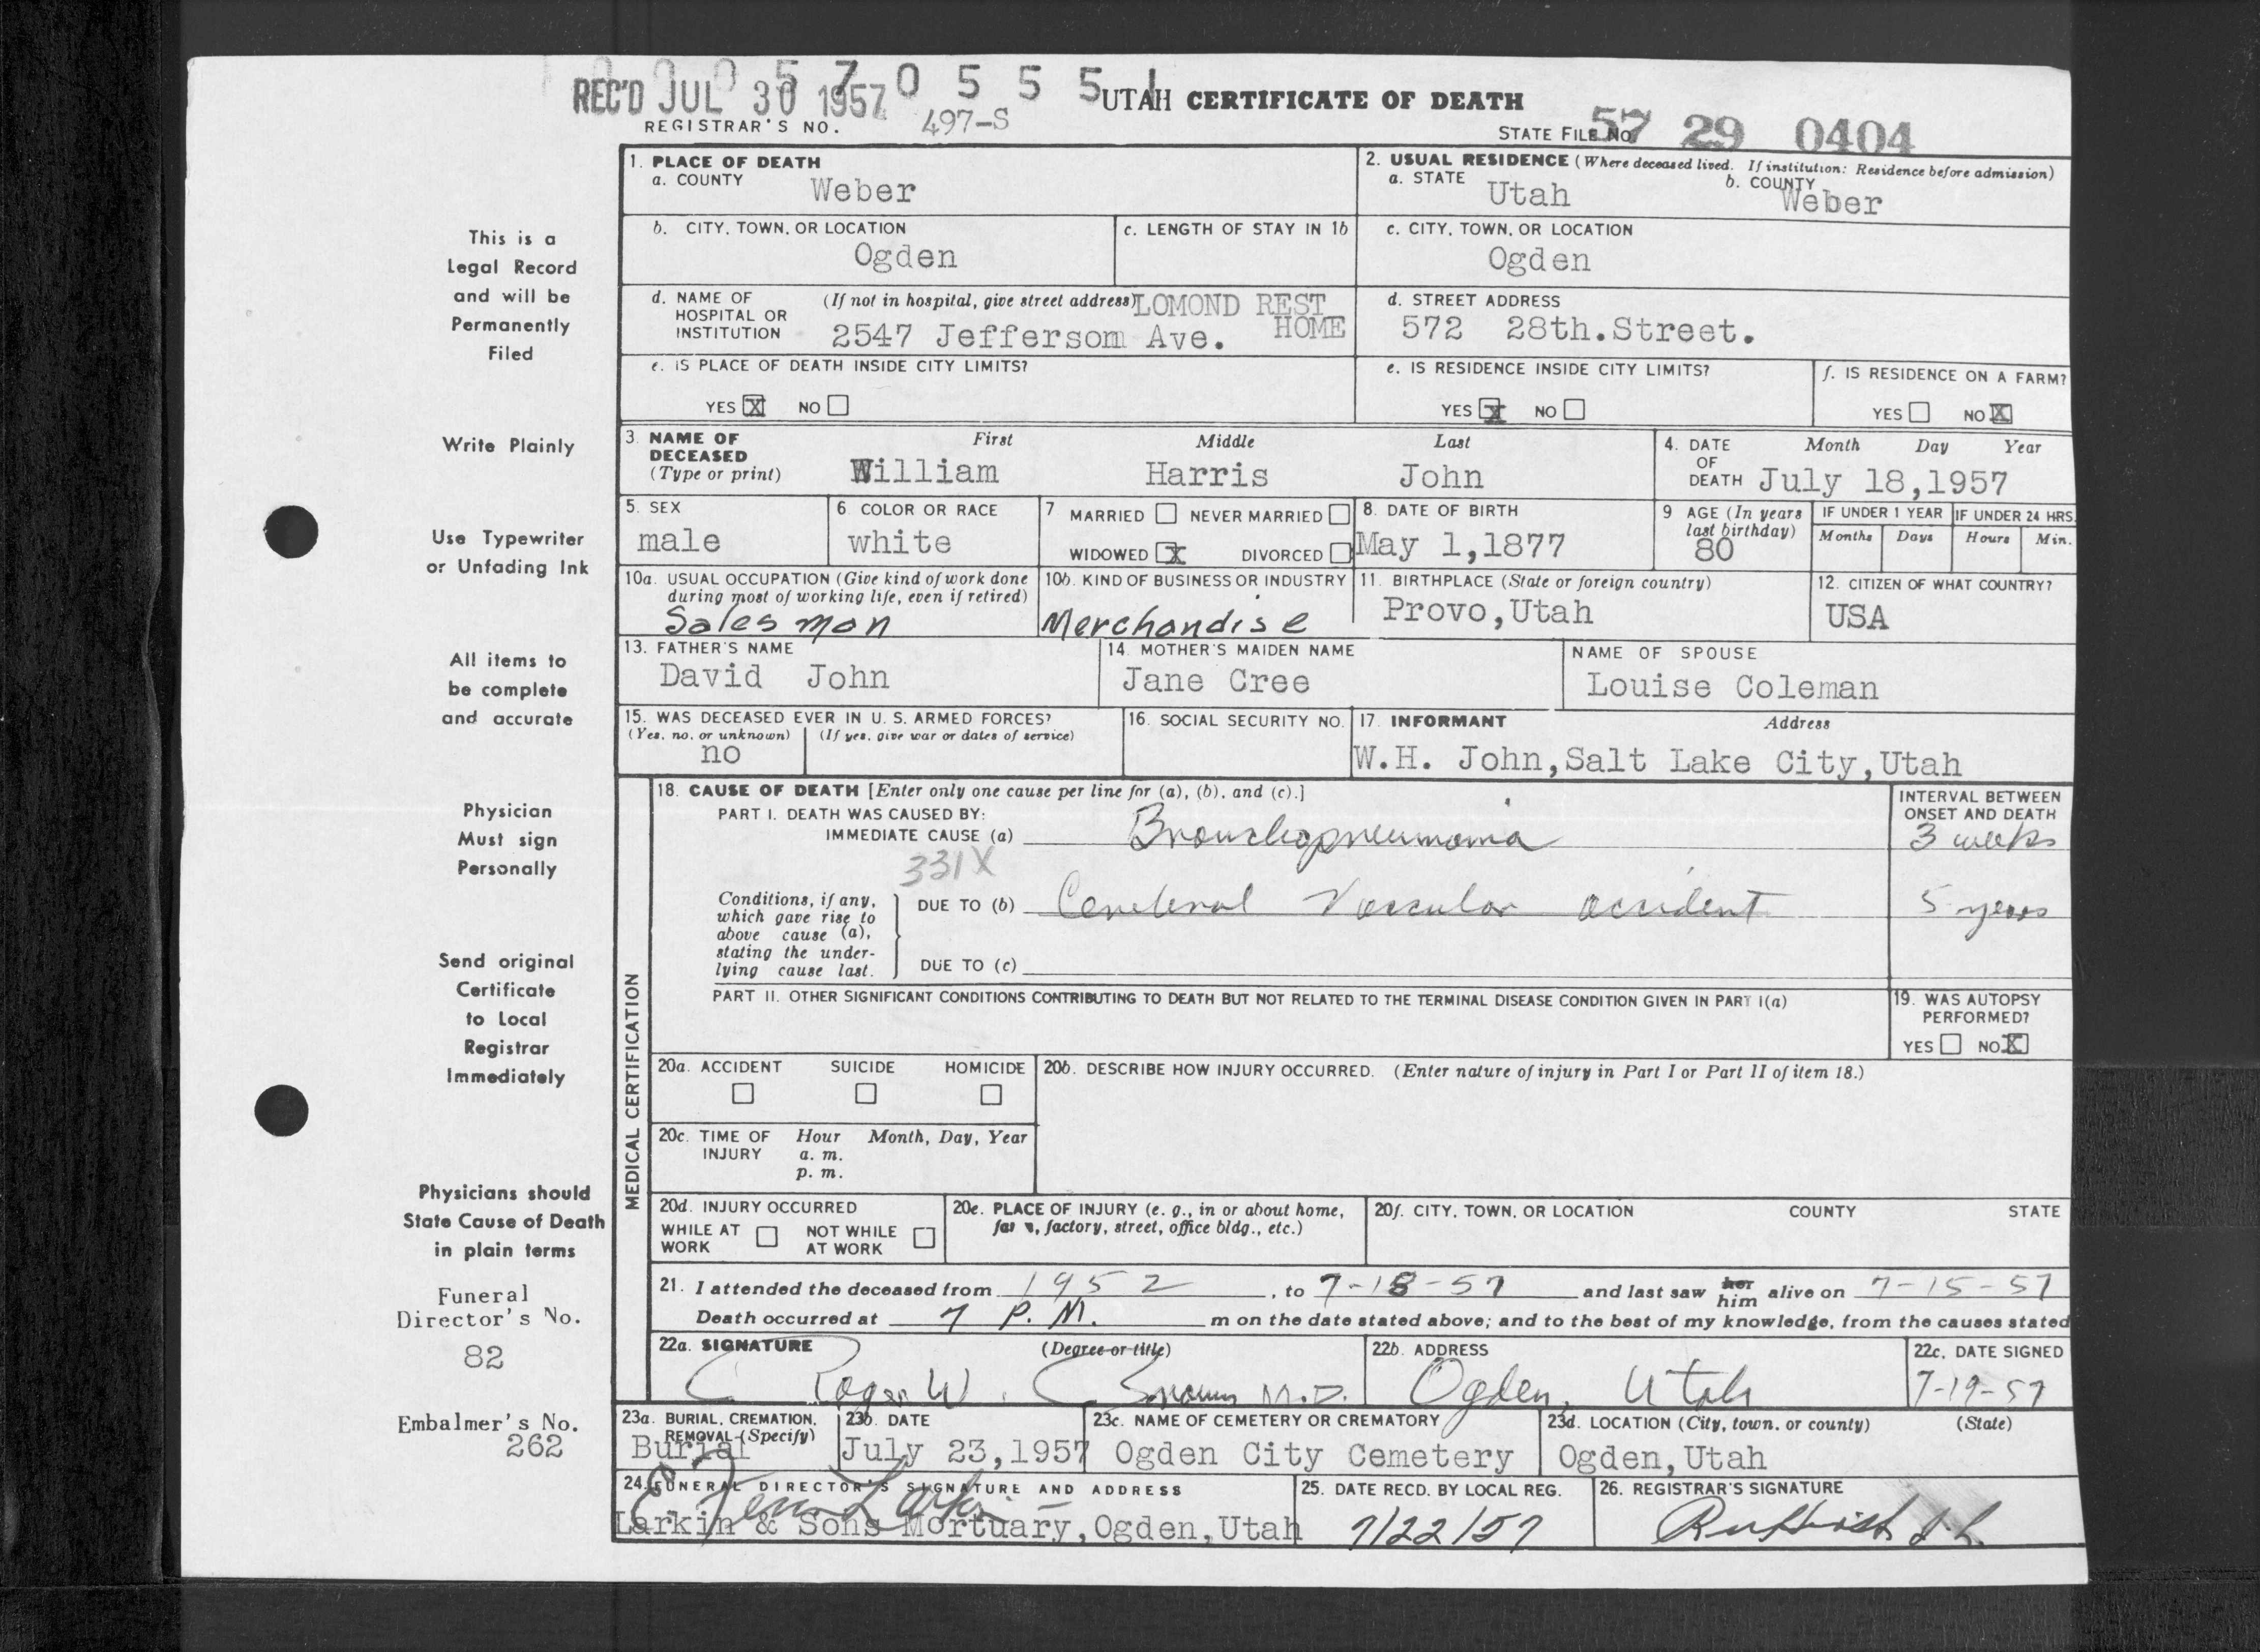 REC'D JUL 30 1957
0 5 7 0 5 5 5 1
UTAH CERTIFICATE OF DEATH
REGISTRAR'S NO. 497-S
STATE FILE NO. 57 29 0404
1. PLACE OF DEATH
a. COUNTY Weber
2. USUAL RESIDENCE (Where deceased lived. If institution: Residence before admission)
a. STATE Utah b. COUNTY Weber
b. CITY, TOWN, OR LOCATION Ogden
c. LENGTH OF STAY IN 1b
c. CITY, TOWN, OR LOCATION Ogden
d. NAME OF HOSPITAL OR INSTITUTION (If not in hospital, give street address) LOMOND REST HOME
2547 Jefferson Ave.
d. STREET ADDRESS
572 28th.Street.
e. IS PLACE OF DEATH INSIDE CITY LIMITS?
YES X NO
e. IS RESIDENCE INSIDE CITY LIMITS?
YES X NO
f. IS RESIDENCE ON A FARM?
YES NO X
3. NAME OF DECEASED (Type or print)
First Middle Last
William Harris John
4. DATE OF DEATH Month Day Year
July 18,1957
5. SEX male
6. COLOR OR RACE white
7 MARRIED NEVER MARRIED
WIDOWED X DIVORCED
8. DATE OF BIRTH May 1,1877
9 AGE (In years last birthday) 80
IF UNDER 1 YEAR Months Days
IF UNDER 24 HRS. Hours Min.
10a. USUAL OCCUPATION (Give kind of work done during most of working life, even if retired)
Salesman
10b. KIND OF BUSINESS OR INDUSTRY
Merchandise
11. BIRTHPLACE (State or foreign country)
Provo,Utah
12. CITIZEN OF WHAT COUNTRY?
USA
13. FATHER'S NAME
David John
14. MOTHER'S MAIDEN NAME
Jane Cree
NAME OF SPOUSE
Louise Coleman
15. WAS DECEASED EVER IN U. S. ARMED FORCES?
(Yes, no, or unknown) (If yes, give war or dates of service)
no
16. SOCIAL SECURITY NO.
17. INFORMANT Address
W.H. John,Salt Lake City,Utah
MEDICAL CERTIFICATION
18. CAUSE OF DEATH [Enter only one cause per line for (a), (b), and (c).]
INTERVAL BETWEEN ONSET AND DEATH
PART I. DEATH WAS CAUSED BY:
IMMEDIATE CAUSE (a) Bronchopneumonia 3 weeks
331X
Conditions, if any, which gave rise to above cause (a), stating the underlying cause last.
DUE TO (b) Cerebral Vascular accident 5 years
DUE TO (c)
PART II. OTHER SIGNIFICANT CONDITIONS CONTRIBUTING TO DEATH BUT NOT RELATED TO THE TERMINAL DISEASE CONDITION GIVEN IN PART I(a)
19. WAS AUTOPSY PERFORMED?
YES NO X
20a. ACCIDENT SUICIDE HOMICIDE
20b. DESCRIBE HOW INJURY OCCURRED. (Enter nature of injury in Part I or Part II of item 18.)
20c. TIME OF INJURY Hour Month, Day, Year
a. m.
p. m.
20d. INJURY OCCURRED
WHILE AT WORK NOT WHILE AT WORK
20e. PLACE OF INJURY (e. g., in or about home, farm, factory, street, office bldg., etc.)
20f. CITY, TOWN, OR LOCATION COUNTY STATE
21. I attended the deceased from 1952, to 7-18-57 and last saw her him alive on 7-15-57
Death occurred at 7 P.M. m on the date stated above; and to the best of my knowledge, from the causes stated
22a. SIGNATURE (Degree or title)
Roger W. M.D.
22b. ADDRESS
Ogden, Utah
22c. DATE SIGNED
7-19-57
23a. BURIAL, CREMATION, REMOVAL (Specify)
Burial
23b. DATE
July 23,1957
23c. NAME OF CEMETERY OR CREMATORY
Ogden City Cemetery
23d. LOCATION (City, town, or county) (State)
Ogden,Utah
24. FUNERAL DIRECTOR'S SIGNATURE AND ADDRESS
Larkin
Larkin & Sons Mortuary,Ogden,Utah
25. DATE RECD. BY LOCAL REG.
7/22/57
26. REGISTRAR'S SIGNATURE
This is a
Legal Record
and will be
Permanently
Filed
Write Plainly
Use Typewriter
or Unfading Ink
All items to
be complete
and accurate
Physician
Must sign
Personally
Send original
Certificate
to Local
Registrar
Immediately
Physicians should
State Cause of Death
in plain terms
Funeral
Director's No.
82
Embalmer's No.
262